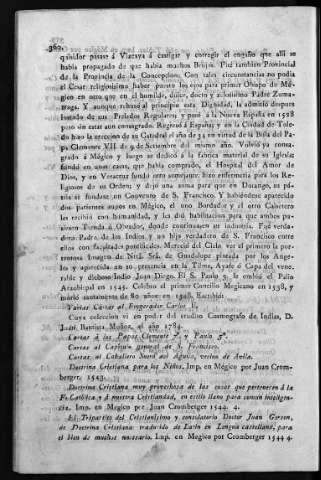 382.
quisidor pasase á Viscaya á castigar y corregir el engaño que allí se
habia propagado de que habia muchos Brujos. Fue tambien Provincial
de la Provincia de la Concepcion. Con tales circunstancias no podia
el Cesar religiosísimo haber puesto los ojos para primer Obispo de Mé-
gico en otro que en el humilde, dócil, docto y zelosísimo Padre Zuma-
rraga. Y aunque rehusó al principio esta Dignidad, la admitió despues
instado de sus Prelados Regulares y pasó á la Nueva España en 1528
pero sin estar aun consagrado. Regresó á España; y en la Ciudad de Tole-
do hizo la ereccion de su Catedral el año de 34 en virtud de la Bula del Pa-
pa Clemente VII de 9 de Setiembre del mismo año. Volvió ya consa-
grado á Mégico y luego se dedicó á la fabrica material de su Iglesia
fundó en unas casas, que habia comprado, el Hospital del Amor de
Dios, y en Veracruz fundó otro semejante: hizo enfermeria para los Re-
ligiosos de su Orden; y dejó una suma para que en Durango, su pa-
tria se fundase un Convento de S. Francisco. Y habiendose aparecido
dos parientes suyos en Mégico, el uno Bordador y el otro Cabetero
les recibió con humanidad, y les dió habilitacion para que ambos pu-
siesen Tienda ú Obrador, donde continuasen su industria. Fue verda-
dero Padre de los Indios, y un hijo verdadero de S. Francisco entre
ellos con facultades pontificias. Mereció del Cielo ver el primero la por-
tentosa Imagen de Ntrâ. Srâ. de Guadalupe pintada por los Ange-
les y aparecida en su presencia en la Tilma, Ayate ó Capa del vene-
rable y dichoso Indio Juan Diego. El S. Paulo 3. le embió el Palio
Arzobispal en 1545. Celebró el primer Concilio Megicano en 1538, y
murió santamente de 80 años en 1548. Escribió:
Varias Cartas al Emperador Carlos V.
Cuya coleccion ví en poder del erudito Cosmografo de Indias, D.
Juan Bautista Muñoz, el año 1784.
Cartas á los Papas Clemente 7.º y Paulo 3.º
Cartas al Capítulo general de S. Francisco.
Cartas al Caballero Suero del Aguila, vecino de Avila.
Doctrina Cristiana para los Niños, Imp. en Mégico por Juan Crom-
berger, 1543.
Doctrina Cristiana muy provechosa de las cosas que pertenecen á la
Fe Católica y á nuestra Cristiandad, en estilo llano para comun inteligen-
cia. Imp. en Mégico por Juan Cromberger 1544. 4.
El Tripartito del Cristianísimo y consolatorio Doctor Juan Gerson,
de Doctrina Cristiana: traducido de Latin en Lengua castellana, para
el bien de muchos necesario. Imp. en Mégico por Cromberger 1544 4.